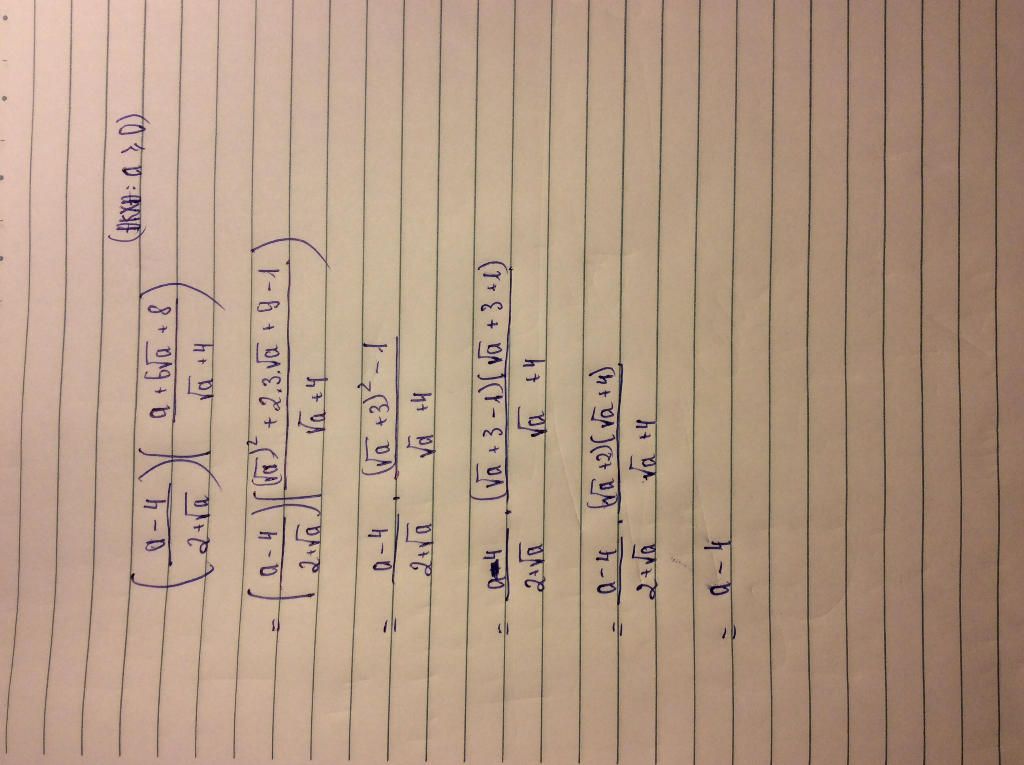 ((a-4)/(2+√a))((a+6√a+8)/(√a+4)) (ĐKXĐ: a ≥ 0)
= ((a-4)/(2+√a))(((√a)²+2.3.√a+9-1)/(√a+4))
= (a-4)/(2+√a) . ((√a+3)²-1)/(√a+4)
= (a-4)/(2+√a) . ((√a+3-1)(√a+3+1))/(√a+4)
= (a-4)/(2+√a) . ((√a+2)(√a+4))/(√a+4)
= a-4